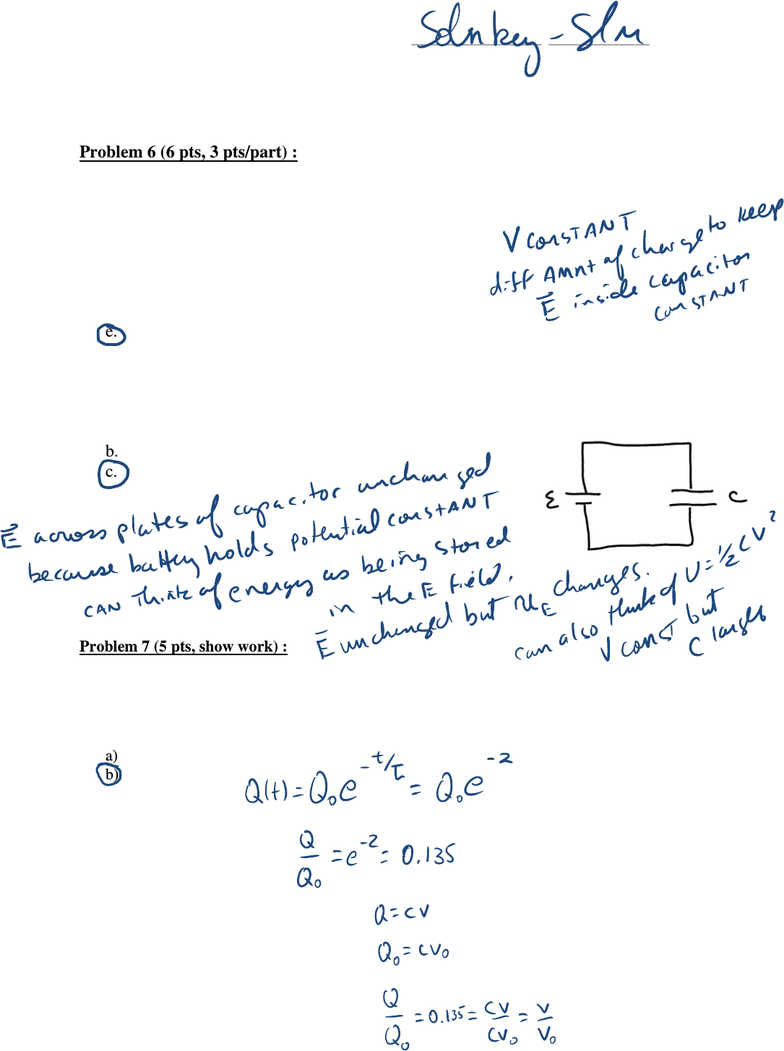 Soln key - SLM
Problem 6 (6 pts, 3 pts/part) :
V CONSTANT
diff Amnt of charge to keep
E⃗ inside capacitor
CONSTANT
e.
b.
c.
ε
C
E⃗ across plates of capacitor unchanged
because battery holds potential constANT
CAN think of energy as being stored
in the E field.
E⃗ unchanged but u_E changes.
can also think of U = ½ CV²
V const but
C larger
Problem 7 (5 pts, show work) :
a)
b)
Q(t) = Q₀e^(-t/τ) = Q₀e^(-2)
Q/Q₀ = e^(-2) = 0.135
Q = CV
Q₀ = CV₀
Q/Q₀ = 0.135 = CV/CV₀ = V/V₀